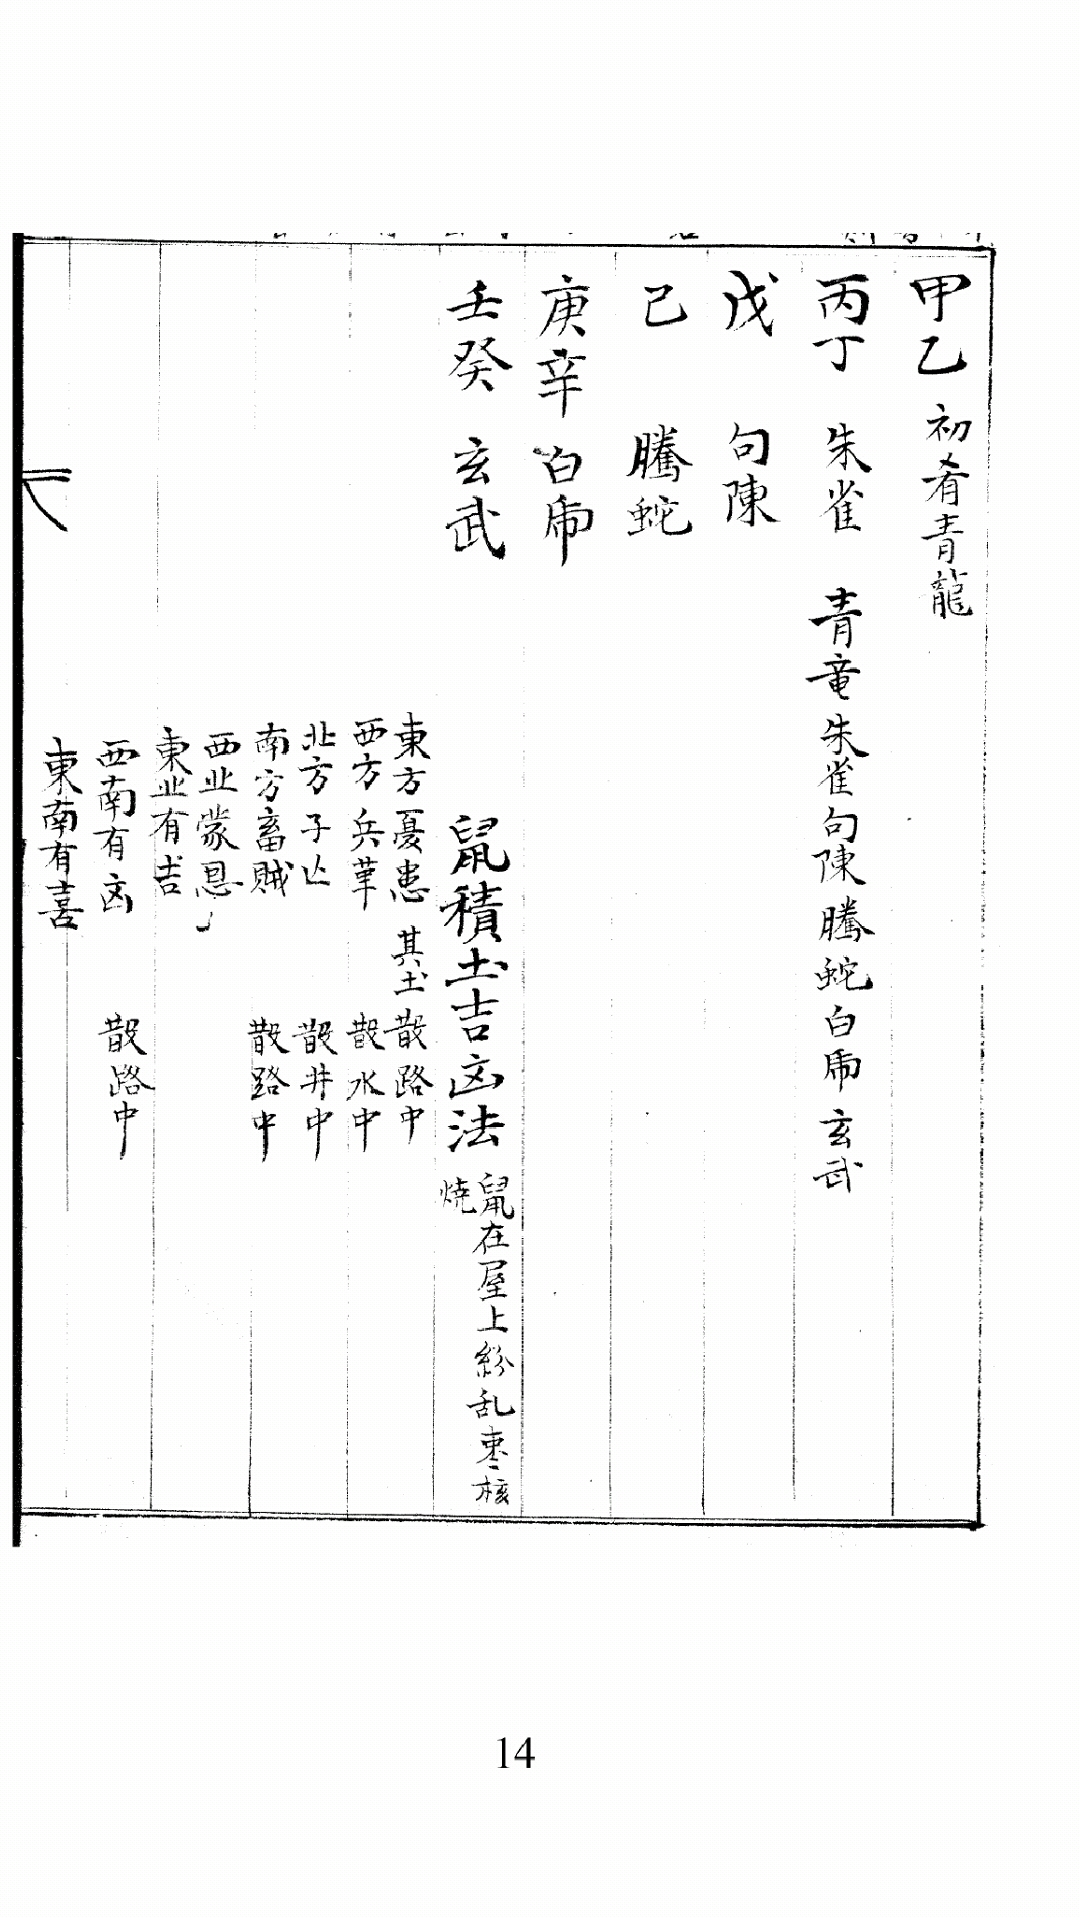 甲乙 初肴青龍
丙丁 朱雀 青竜朱雀句陳騰蛇白虎玄武
戊 句陳
己 騰蛇
庚辛 白虎
壬癸 玄武
鼠積土吉凶法 鼠在屋上紛乱棗核
焼
東方憂患 其土散路中
西方兵革 散水中
北方子亡 散井中
南方畜賊 散路中
西北蒙恩
東北有吉
西南有凶 散路中
東南有喜
14